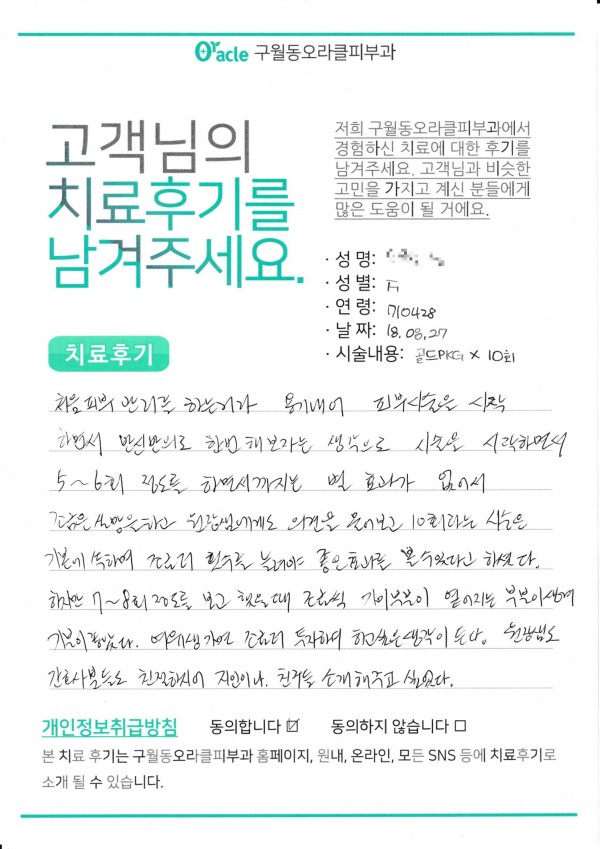 Oracle 구월동오라클피부과
고객님의
치료후기를
남겨주세요.
저희 구월동오라클피부과에서
경험하신 치료에 대한 후기를
남겨주세요. 고객님과 비슷한
고민을 가지고 계신 분들에게
많은 도움이 될 거예요.
· 성 명:
· 성 별: F
· 연 령: 710428
· 날 짜: 18.08.27
· 시술내용: 골드PKG × 10회
치료후기
처음 피부 관리를 하는거라 용기내어 피부시술은 시작
하면서 반신반의로 한번 해보자는 생각으로 시술을 시작하면서
5~6회 정도를 하면서까지는 별 효과가 없어서
조금은 실망을하고 원장쌤에게도 의견을 물어보고 10회라는 시술은
기본에 속하며 조금더 횟수를 늘려야 좋은효과를 볼수있다고 하셨다.
하지만 7~8회정도를 보고 했을때 조금씩 기미부분이 옅어지는 부분이생겨
기분이좋았다. 여유가 생기면 조금더 투자하며 하고싶은생각이 든다. 원장쌤도
간호사분들도 친절하시어 지인이나 친구들 소개해주고 싶었다.
개인정보취급방침 동의합니다 ☑ 동의하지 않습니다 ☐
본 치료 후기는 구월동오라클피부과 홈페이지, 원내, 온라인, 모든 SNS 등에 치료후기로
소개 될 수 있습니다.